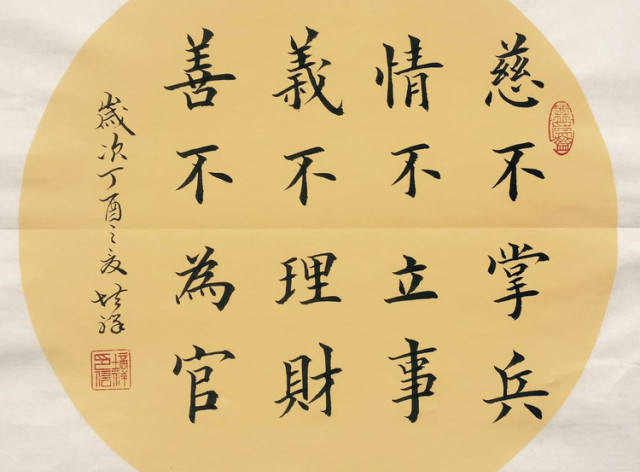 慈不掌兵
情不立事
義不理財
善不為官
歲次丁酉之夏 培祥